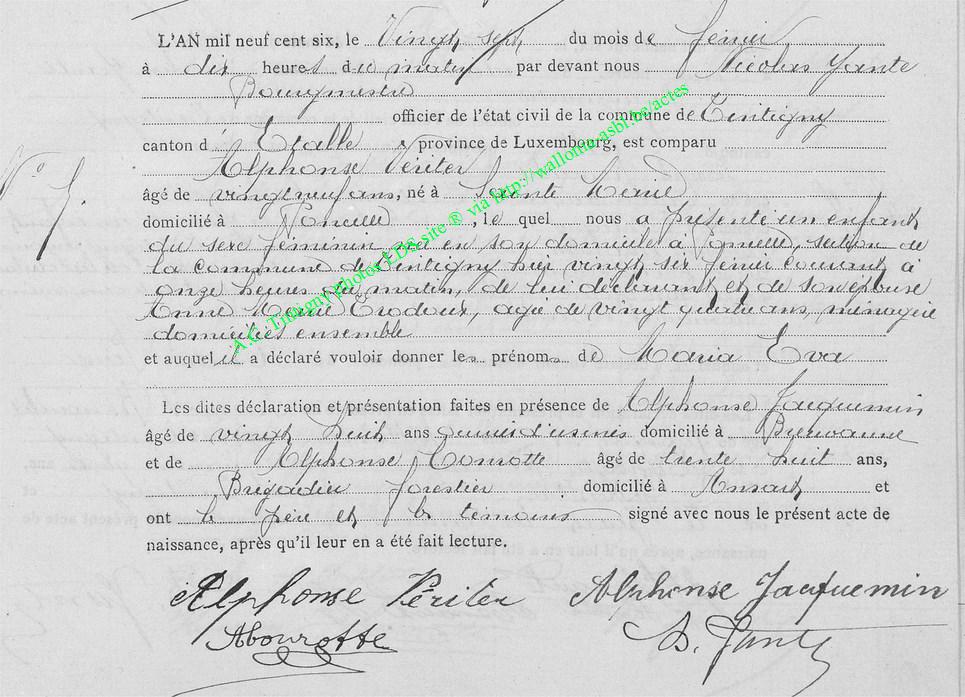 L'AN mil neuf cent six, le Vingt sept du mois de février
à dix heures du matin par devant nous Nicolas Jante
Bourgmestre
officier de l'état civil de la commune de Tintigny
canton d'Etalle province de Luxembourg, est comparu
Alphonse Périter
âgé de vingt neuf ans, né à Sainte Marie
domicilié à , le quel nous a présenté un enfant
N° 5
du sexe féminin né en son domicile à section de
la commune de Tintigny hier vingt six février courant à
onze heures du matin, de lui déclarant et de son épouse
Anne Marie agée de vingt quatre ans, ménagère
domiciliés ensemble
et auquel il a déclaré vouloir donner les prénoms de Maria Eva
Les dites déclaration et présentation faites en présence de Alphonse Jacquemin
âgé de vingt huit ans domicilié à
et de Alphonse âgé de trente huit ans,
Brigadier forestier domicilié à Ansart et
ont le père et les témoins signé avec nous le présent acte de
naissance, après qu'il leur en a été fait lecture.
Alphonse Périter Alphonse Jacquemin
A.C. Tintigny photos LDS site ® via http://wallonia-asbl.be/actes